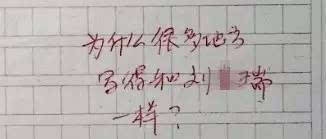 为什么很多地方
写得和刘瑞
一样？